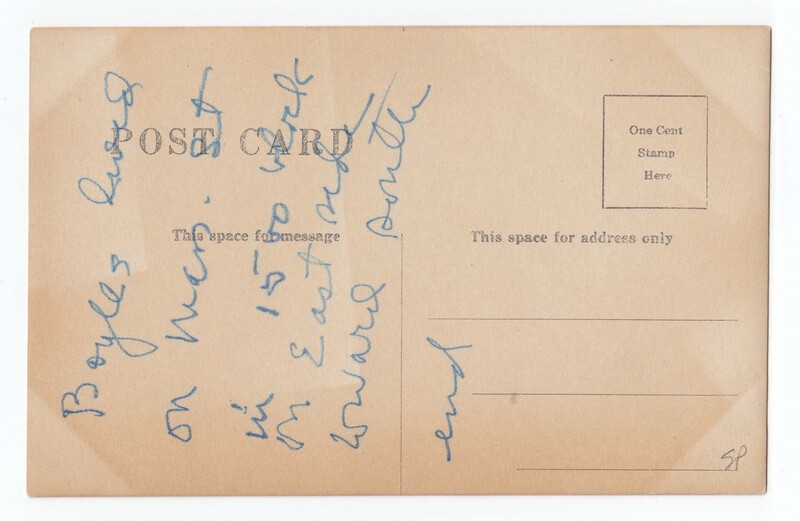 POST CARD
This space for message
This space for address only
One Cent
Stamp
Here
Boyles lived
on Mass. St
in 1500 block
on East side
toward south
end